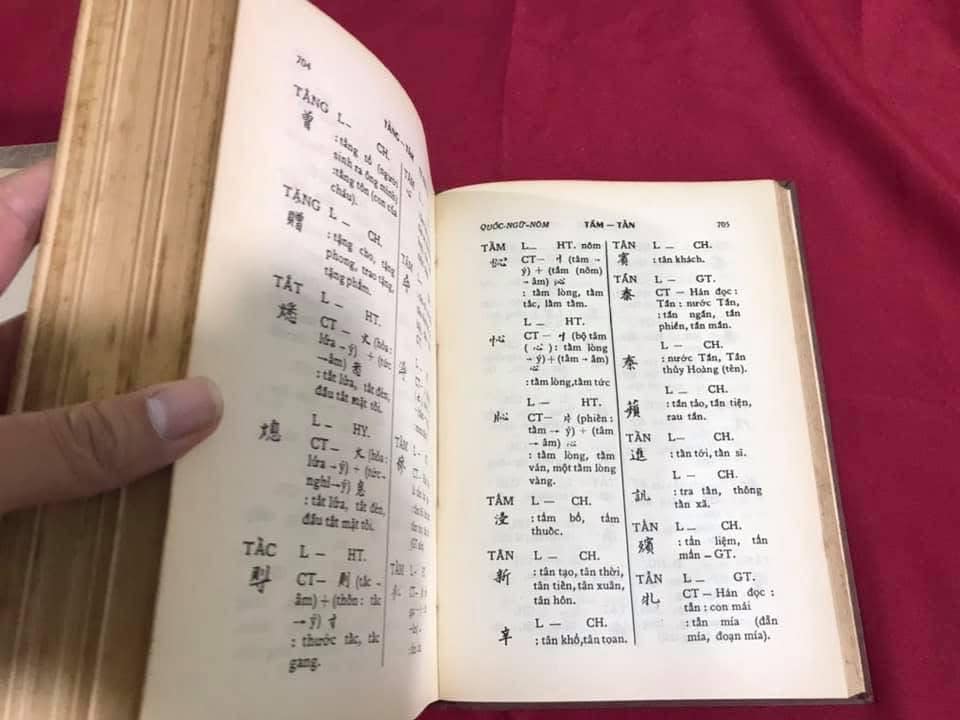 704
TẰNG – TẦM
TẰNG L – CH.
曾
: tằng tổ (người
sinh ra ông mình)
: tằng tôn (con của
cháu).
TẶNG L – CH.
贈
: tặng cho, tặng
phong, trao tặng,
tặng phẩm.
TẮT L – HT.
CT – 火 (hỏa:
lửa → ý) + (tất
→ âm) 悉
: tắt lửa, tắt đèn,
đầu tắt mặt tối.
L – HY.
熄
CT – 火 (hỏa:
lửa → ý) + (tức-
nghỉ → ý) 息
: tắt lửa, tắt đèn,
đầu tắt mặt tối.
TẤC L – HT.
CT – 則 (tắc -
âm) + (thốn: tấc
→ ý) 寸
: thước tấc, tấc
gang.
QUỐC-NGỮ-NÔM TẤM – TẦN 705
TẤM L – HT. nôm
CT – 忄 (tâm →
ý) + (tâm (nôm)
→ âm) 心
: tấm lòng, tấm
tấc, lầm tấm.
L – HT.
CT – 忄 (bộ tâm
( 心 ) : tấm lòng
→ ý) + (tâm → âm)
心
: tấm lòng, tấm tức
L – HT.
CT – 片 (phiến:
tấm → ý) + (tâm
→ âm) 心
: tấm lòng, tấm
ván, một tấm lòng
vàng.
TẨM L – CH.
浸
: tẩm bổ, tẩm
thuốc.
TÂN L – CH.
新
: tân tạo, tân thời,
tân tiến, tân xuân,
tân hôn.
L – CH.
辛
: tân khổ, tân toan.
TÂN L – CH.
賓
: tân khách.
TẦN L – GT.
秦
CT – Hán đọc :
Tần : nước Tần,
: tần ngần, tần
phiền, tần mần.
L – CH.
秦
: nước Tần, Tần
thủy Hoàng (tên).
L – CH.
蘋
: tần tảo, tần tiện,
rau tần.
TẤN L – CH.
進
: tấn tới, tấn sĩ.
L – CH.
訊
: tra tấn, thông
tấn xã.
TẪN L – CH.
殯
: tẫn liệm, tẩn
mẩn – GT.
TẪN L – GT.
牝
CT – Hán đọc :
tẫn : con mái
: tẫn mía (đẵn
mía, đoạn mía).